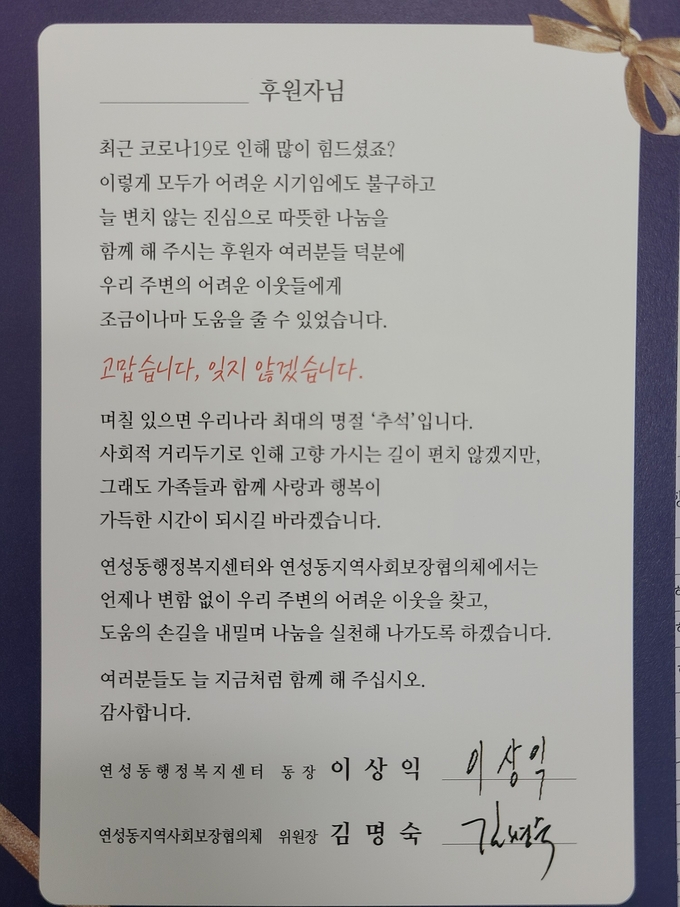 후원자님
최근 코로나19로 인해 많이 힘드셨죠?
이렇게 모두가 어려운 시기임에도 불구하고
늘 변치 않는 진심으로 따뜻한 나눔을
함께 해 주시는 후원자 여러분들 덕분에
우리 주변의 어려운 이웃들에게
조금이나마 도움을 줄 수 있었습니다.
고맙습니다, 잊지 않겠습니다.
며칠 있으면 우리나라 최대의 명절 ‘추석’입니다.
사회적 거리두기로 인해 고향 가시는 길이 편치 않겠지만,
그래도 가족들과 함께 사랑과 행복이
가득한 시간이 되시길 바라겠습니다.
연성동행정복지센터와 연성동지역사회보장협의체에서는
언제나 변함 없이 우리 주변의 어려운 이웃을 찾고,
도움의 손길을 내밀며 나눔을 실천해 나가도록 하겠습니다.
여러분들도 늘 지금처럼 함께 해 주십시오.
감사합니다.
연성동행정복지센터 동장 이상익 이상익
연성동지역사회보장협의체 위원장 김명숙 김명숙